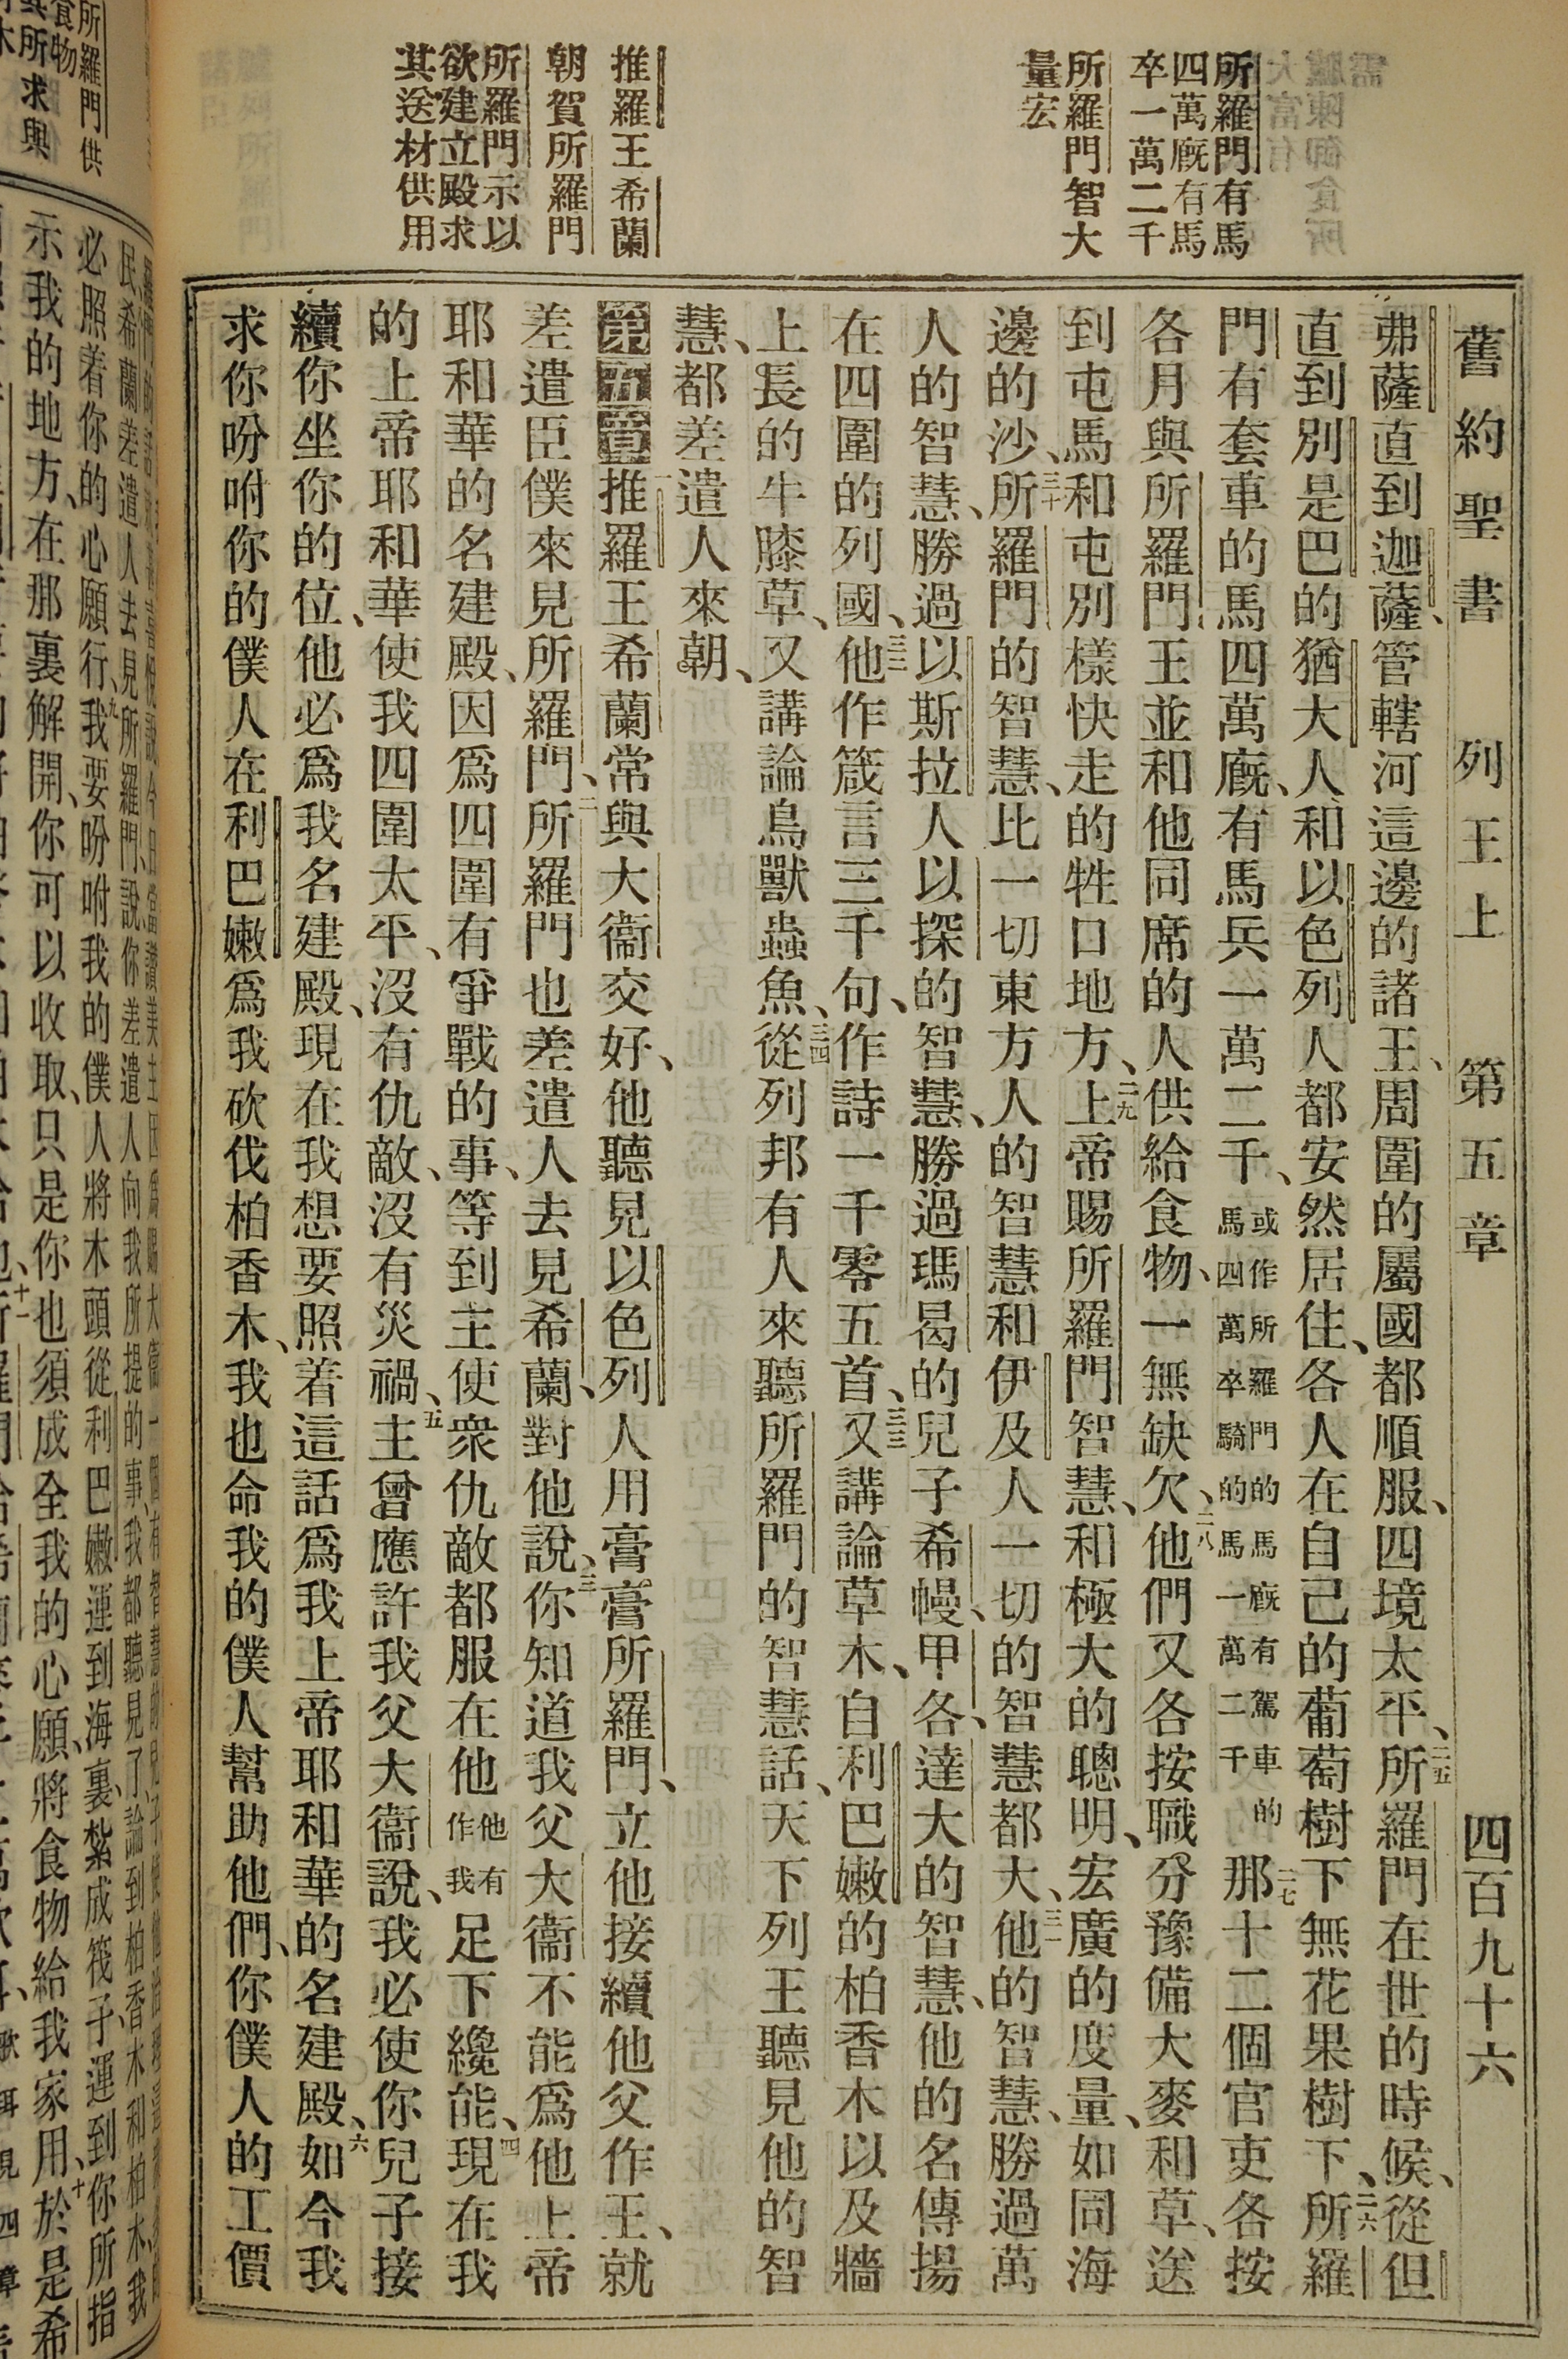 舊約聖書 列王上 第五章 四百九十六
所羅門有馬
四萬廐有馬
卒一萬二千
所羅門智大
量宏
推羅王希蘭
朝賀所羅門
所羅門示以
欲建立殿求
其送材供用
弗薩直到迦薩、管轄河這邊的諸王、周圍的屬國都順服、四境太平、二五所羅門在世的時候、從但
直到別是巴的猶大人、和以色列人都安然居住、各人在自己的葡萄樹下無花果樹下、二六所羅
門有套車的馬四萬廐、有馬兵一萬二千、或作所羅門的馬廐有駕車的馬四萬卒騎的馬一萬二千二七那十二個官吏各按
各月與所羅門王並和他同席的人供給食物、一無缺欠、二八他們又各按職分豫備大麥和草、送
到屯馬和屯別樣快走的牲口地方、二九上帝賜所羅門智慧、和極大的聰明、宏廣的度量、如同海
邊的沙、三十所羅門的智慧、比一切東方人的智慧和伊及人一切的智慧都大、三一他的智慧、勝過萬
人的智慧、勝過以斯拉人以探的智慧、勝過瑪曷的兒子希幔、甲各、達大的智慧、他的名傳揚
在四圍的列國、三二他作箴言三千句、作詩一千零五首、三三又講論草木、自利巴嫩的柏香木以及牆
上長的牛膝草、又講論鳥獸蟲魚、三四從列邦有人來聽所羅門的智慧話、天下列王聽見他的智
慧、都差遣人來朝、
第五章一推羅王希蘭常與大衞交好、他聽見以色列人用膏膏所羅門、立他接續他父作王、就
差遣臣僕來見所羅門、二所羅門也差遣人去見希蘭、對他說、三你知道我父大衞不能爲他上帝
耶和華的名建殿、因爲四圍有爭戰的事、等到主使衆仇敵都服在他他有作我足下纔能、四現在我
的上帝耶和華使我四圍太平、沒有仇敵、沒有災禍、五主曾應許我父大衞說、我必使你兒子接
續你坐你的位、他必爲我名建殿、現在我想要照着這話爲我上帝耶和華的名建殿、六如今我
求你吩咐你的僕人在利巴嫩爲我砍伐柏香木、我也命我的僕人幫助他們、你僕人的工價
所羅門供
食物
其所求與
必照着你的心願行、我要吩咐我的僕人將木頭從利巴嫩運到海裏、紮成筏子、運到你所指
示我的地方、在那裏解開、你可以收取、只是你也須成全我的心願、將食物給我家用、十於是希